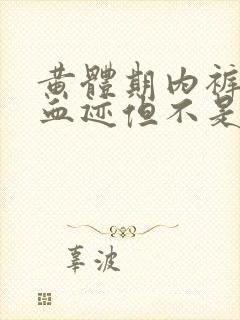 黄體期内裤
血迹但不是
辜波